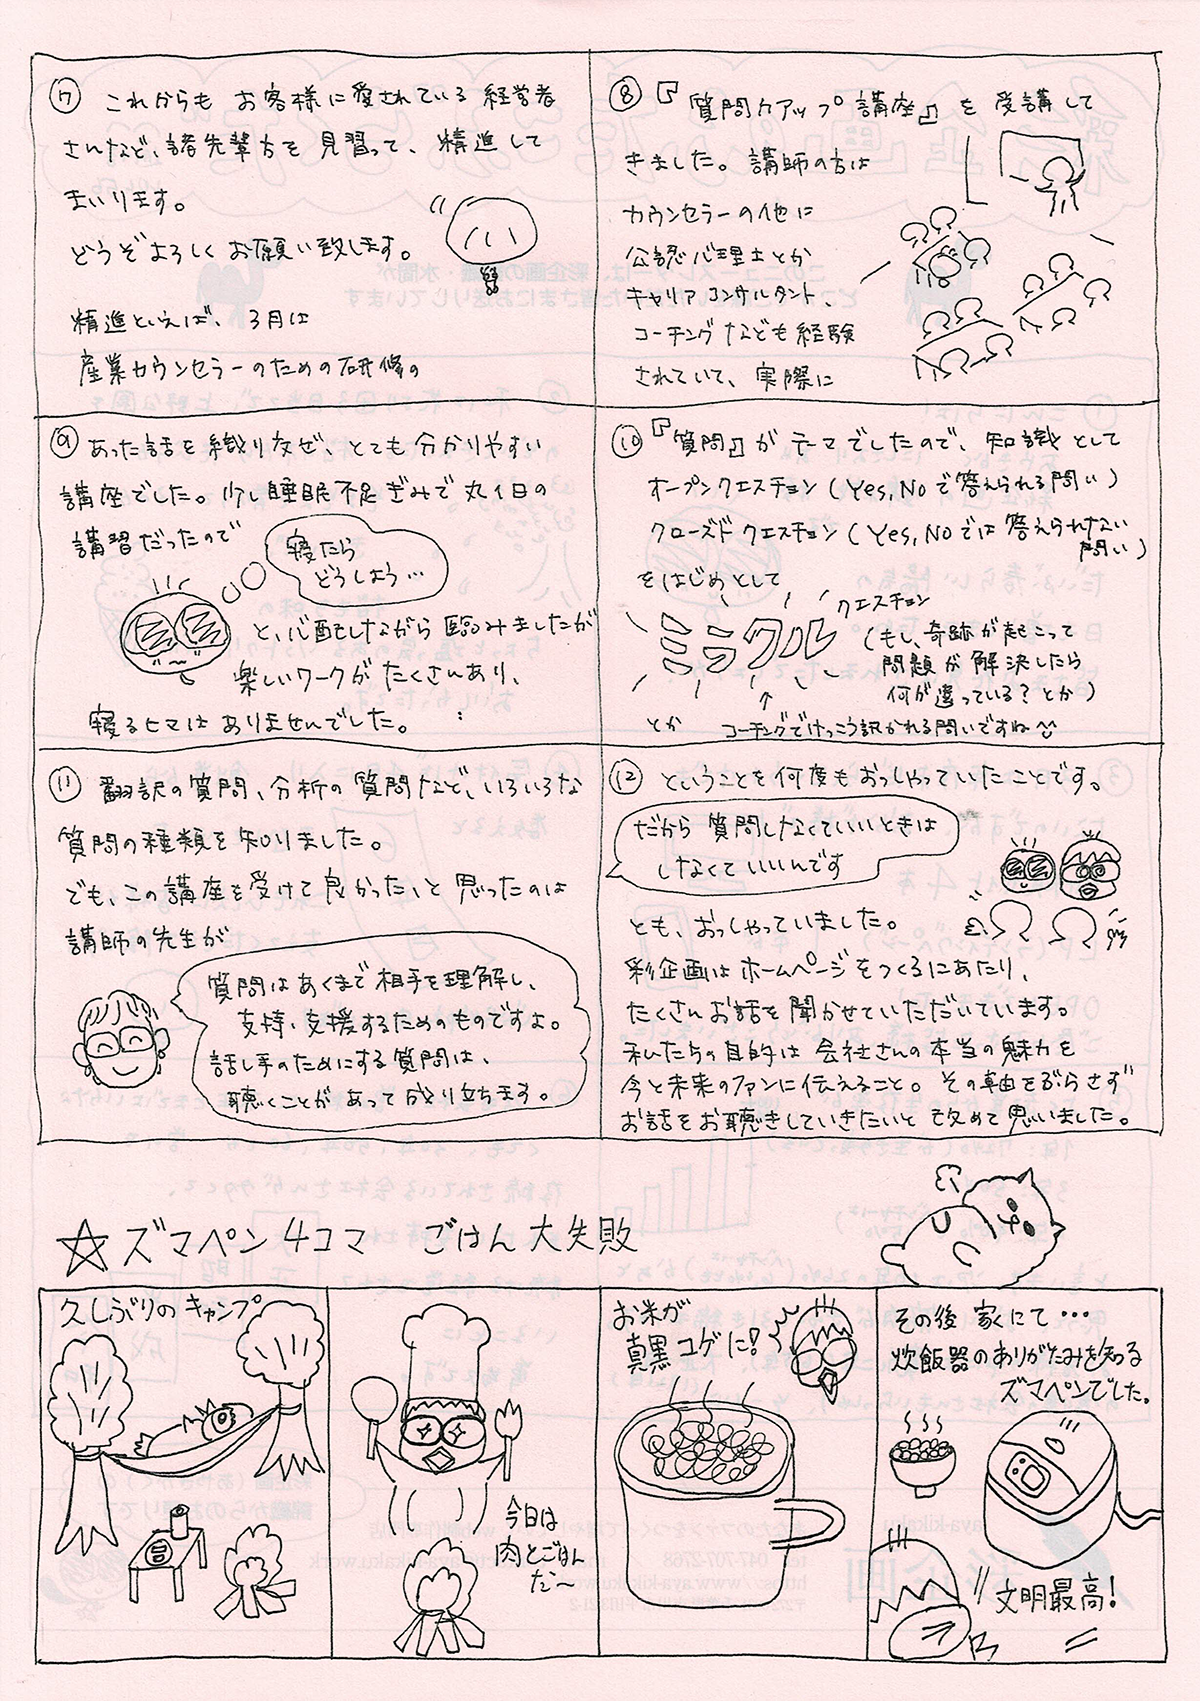 ⑦ これからも お客様に愛されている 経営者
さんなど、諸先輩方を 見習って、精進して
まいります。
どうぞよろしく お願い致します。
精進といえば、3月は
産業カウンセラーのための研修の
⑧『質問力アップ講座』を 受講して
きました。講師の方は
カウンセラーの他に
公認心理士とか
キャリアコンサルタント、
コーチングなども経験
されていて、実際に
⑨ あった話を織りなぜ、とても分かりやすい
講座でした。少し睡眠不足ぎみで丸1日の
講習だったので
寝たら
どうしよう…
と、心配しながら 臨みましたが
楽しいワークがたくさんあり、
寝るヒマはありませんでした。
⑩『質問』がテーマでしたので、知識として
オープンクエスチョン(Yes,Noで答えられる問い)
クローズドクエスチョン(Yes,Noでは答えられない
問い)
をはじめとして
ミラクル クエスチョン
(もし、奇跡が起こって
問題が解決したら
何が違っている?とか)
とか
↑
コーチングでけっこう訊かれる問いですね
⑪ 翻訳の質問、分析の質問など、いろいろな
質問の種類を知りました。
でも、この講座を受けて良かった、と思ったのは
講師の先生が
質問はあくまで相手を理解し、
支持・支援するためのものですよ。
話し手のためにする質問は、
聴くことがあって成り立ちます。
⑫ ということを何度もおっしゃっていたことです。
だから 質問しなくていいときは
しなくていいんです
とも、おっしゃっていました。
彩企画はホームページをつくるにあたり、
たくさんお話を聞かせていただいています。
私たちの目的は 会社さんの本当の魅力を
今と未来のファンに伝えること。その軸をぶらさず
お話をお聴きしていきたいと改めて思いました。
☆ズマペン4コマ ごはん大失敗
久しぶりのキャンプ
今日は
肉とごはん
だ〜
お米が
真黒コゲに!
その後 家にて…
炊飯器のありがたみを知る
ズマペンでした。
文明最高!